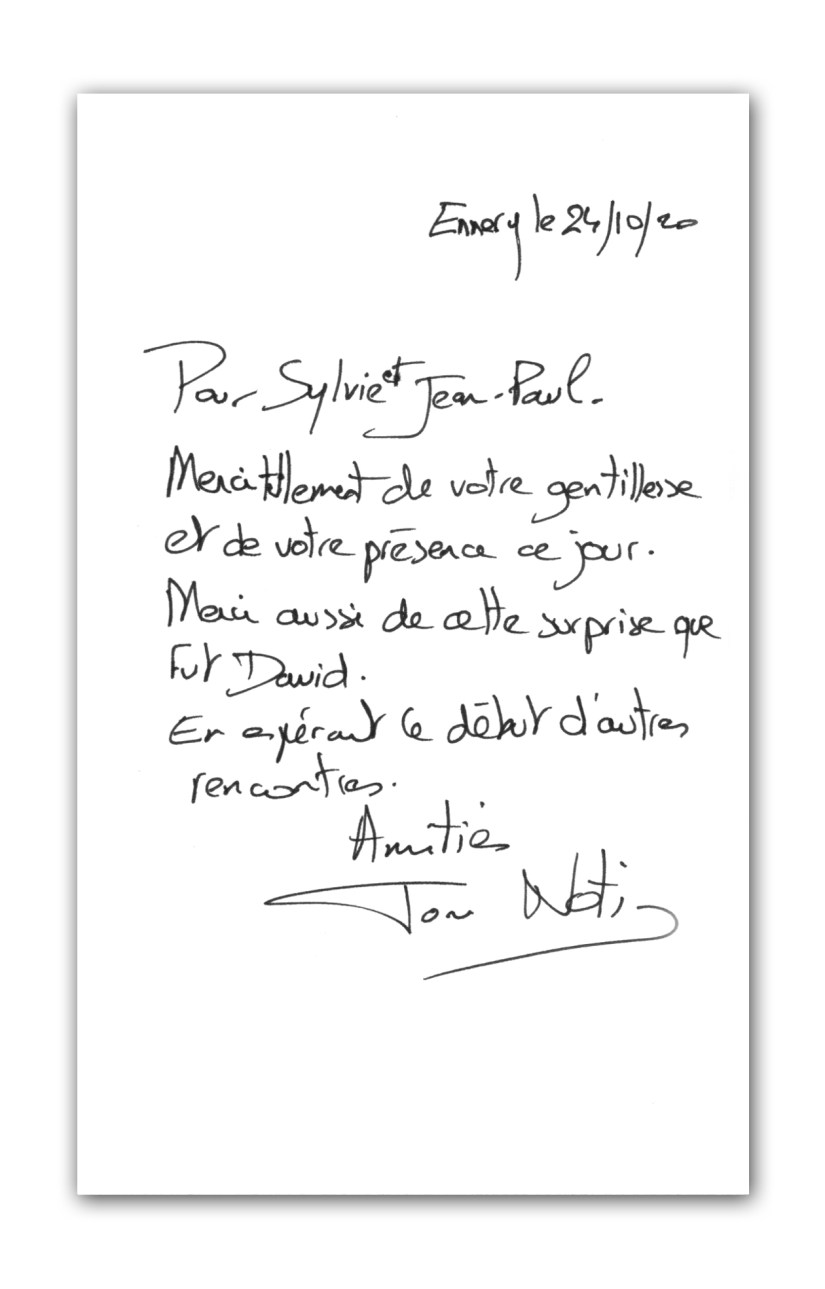 Ennery le 24/10/20
Pour Sylvie et Jean-Paul.
Merci tellement de votre gentillesse
et de votre présence ce jour.
Merci aussi de cette surprise que
fut David.
En espérant le début d'autres
rencontres.
Amitiés
Tom Noti